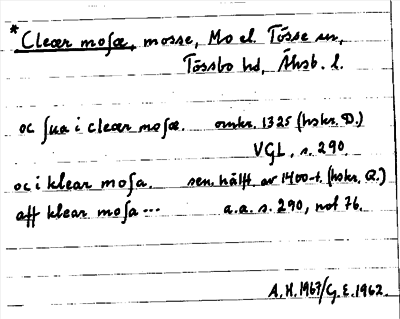 * Clear mosæ, mosse, Mo el. Tösse sn,
Tössbo hd, Älvsb. l.
oc sua i clear mosæ. omkr. 1325 (hskr. D.)
VGL, s. 290.
oc i klear mosa. sen. hälft. av 1400-t. (hskr. Q.)
aff klear mosa --- a.a. s. 290, not 76.
A.H. 1967/G.E. 1962.